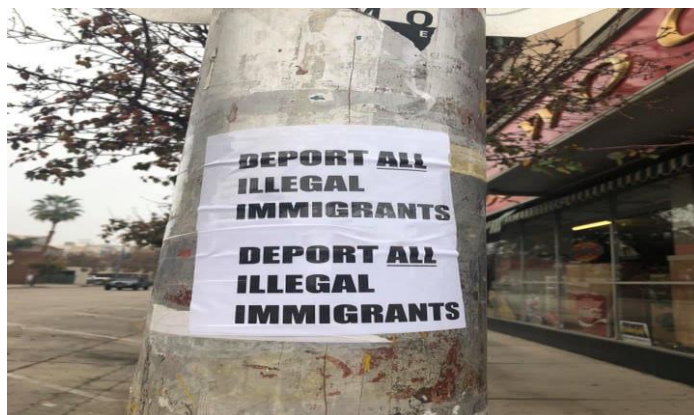 M O
E
DEPORT ALL
ILLEGAL
IMMIGRANTS
DEPORT ALL
ILLEGAL
IMMIGRANTS